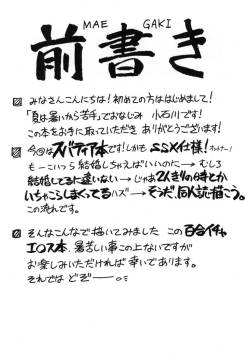 MAE GAKI
前書き
みなさんこんにちは!初めての方ははじめまして!
「夏は暑いから苦手」でおなじみ 小石川です!
この本をお手に取っていただき ありがとうございます!
今回はスバティア本です!しかもSSX仕様!
もーこいつら結婚しちゃえばいいのに→むしろ
結婚してるに違いない→じゃあ2人きりの時とか
いちゃこらしまくってるハズ→そうだ、同人誌描こう。
この流れです。
そんなこんなで描いてみました この百合イチャ
エロス本、暑苦しい事この上ないですが
お楽しみいただければ 幸いであります。
それでは どぞー